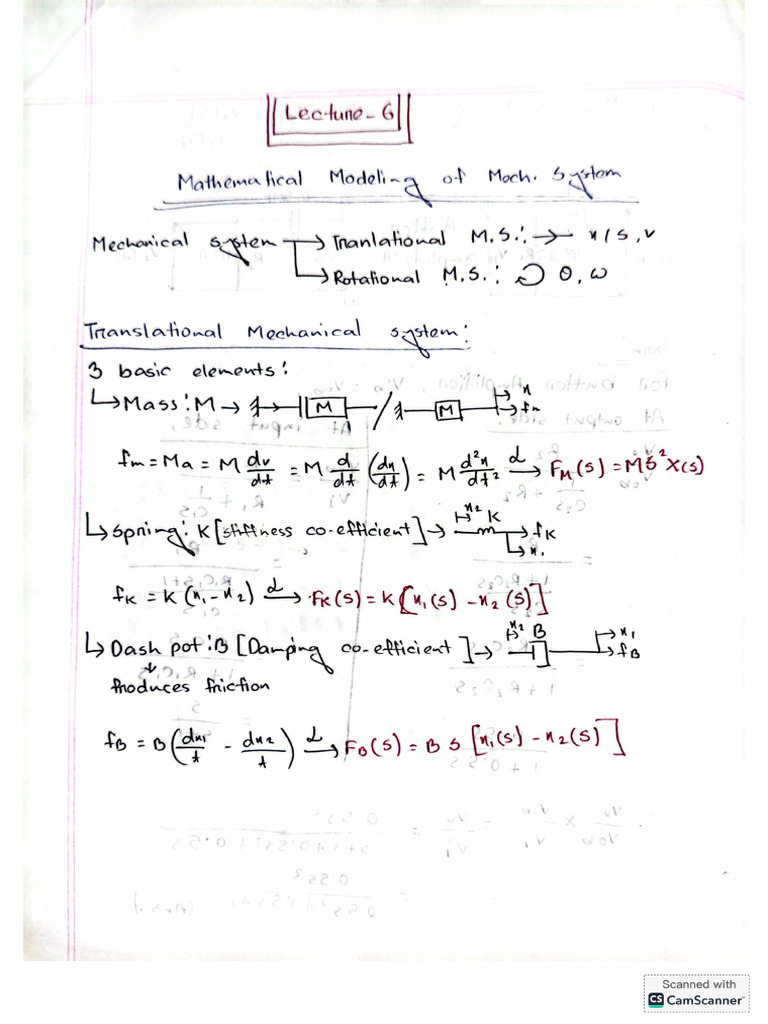 Lecture-6
Mathematical Modeling of Mech. System
Mechanical system → Tranlational M.S.: → x/s, v
→ Rotational M.S.: ↻ θ, ω
Translational Mechanical system:
3 basic elements:
↳ Mass: M → M / M x fm
fm = Ma = M dv/dt = M d/dt (dx/dt) = M d²x/dt² L→ F_M(s) = MS² X(s)
↳ Spring: K [stiffness co-efficient] → x2 K fK x1
fK = K (x1 - x2) L→ FK(s) = K [x1(s) - x2(s)]
↳ Dash pot: B [Damping co-efficient] → x2 B x1 fB
Produces friction
fB = B (dx1/t - dx2/t) L→ FB(s) = B s [x1(s) - x2(s)]
Scanned with
CS CamScanner